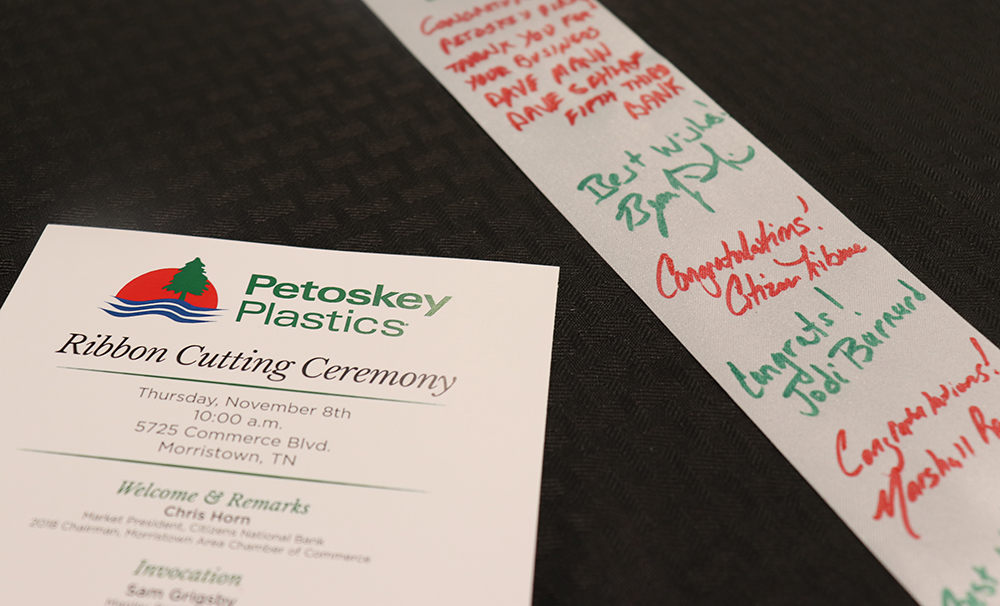 Petoskey
Plastics
Ribbon Cutting Ceremony
Thursday, November 8th
10:00 a.m.
5725 Commerce Blvd.
Morristown, TN
Welcome & Remarks
Chris Horn
Market President, Citizens National Bank
2018 Chairman, Morristown Area Chamber of Commerce
Invocation
Sam Grigsby
PETOSKEY
THANK YOU FOR
YOUR BUSINESS
DAVE MANN
DAVE
FIFTH THIRD
BANK
Best Wishes!
Congratulations!
Citizen Tribune
Congrats!
Jodi Barnard
Congratulations!
Marshall
Best